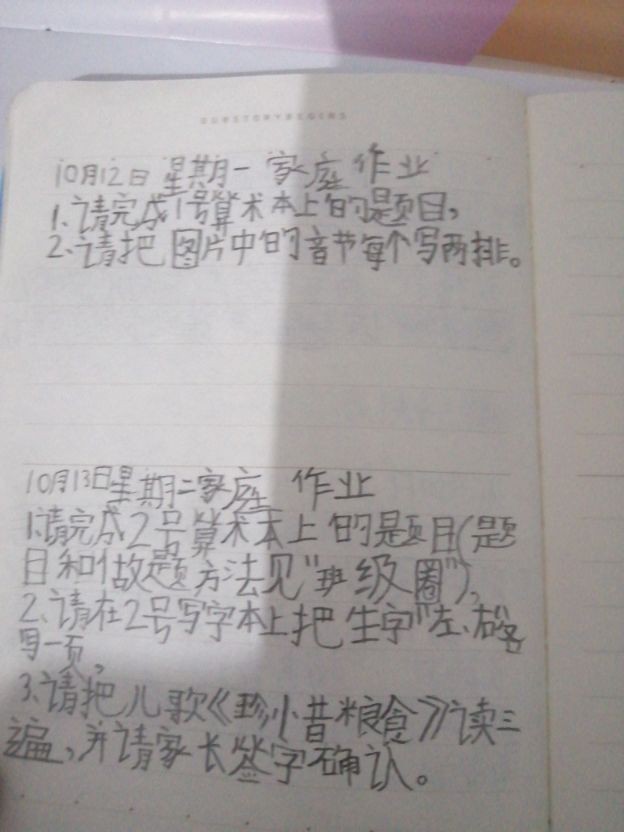 OURSTORYBEGINS
10月12日 星期一 家庭 作业
1.请完成1号算术本上的题目,
2.请把 图片中的音节每个写两排。
10月13日星期二家庭 作业
1.请完成2号算术本上的题目(题
目和做题方法见"班级圈"),
2.请在2号写字本上把生字"左、右"各
写一页,
3.请把儿歌《珍小昔粮食》读三
遍,并请家长签字确认。